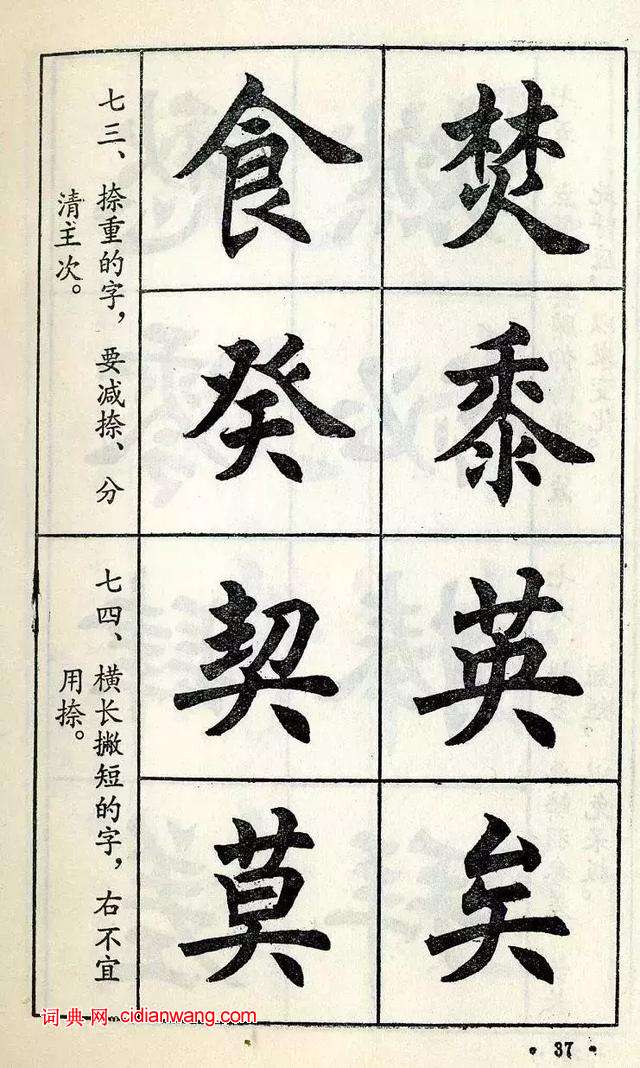 七三、捺重的字，要减捺、分
清主次。
焚
食
黍
癸
七四、横长撇短的字，右不宜
用捺。
英
契
矣
莫
词典网:cidianwang.com
• 37 •